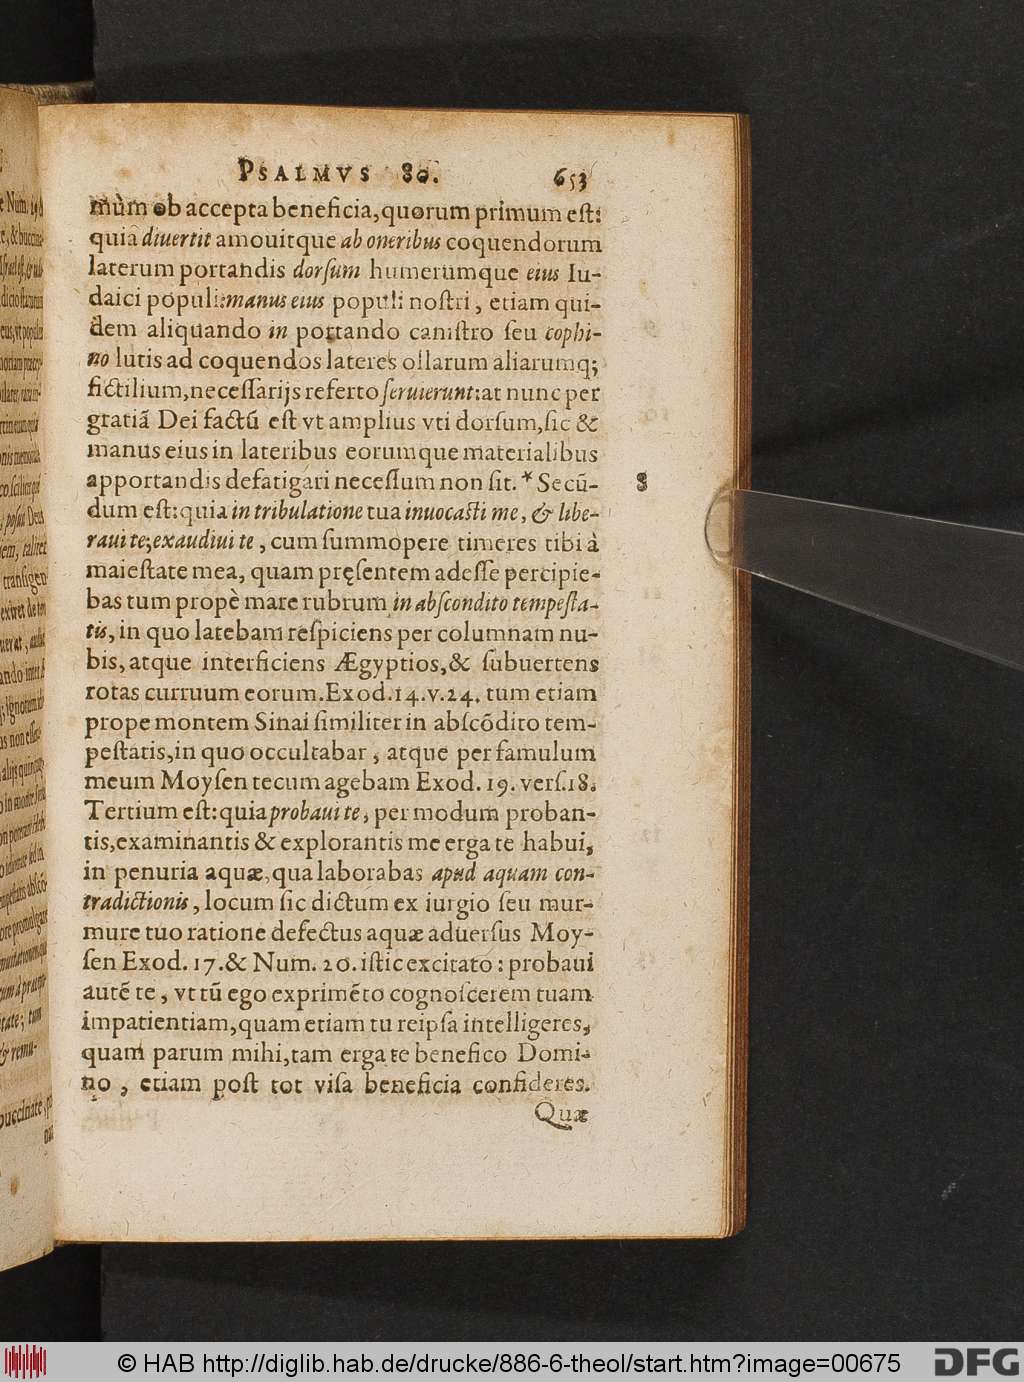 PSALMVS 80. 653
mùm ob accepta beneficia,quorum primum est:
quia diuertit amouitque ab oneribus coquendorum
laterum portandis dorsum humerumque eius Iu-
daici populi:manus eius populi nostri, etiam qui-
dem aliquando in portando canistro seu cophi-
no lutis ad coquendos lateres ollarum aliarumq;
fictilium,necessarijs referto seruierunt:at nunc per
gratiã Dei factũ est vt amplius vti dorsum,sic &
manus eius in lateribus eorumque materialibus
apportandis defatigari necessum non sit. * Secũ-
8
dum est:quia in tribulatione tua inuocasti me, & libe-
raui te;exaudiui te, cum summopere timeres tibi à
maiestate mea, quam pręsentem adesse percipie-
bas tum propè mare rubrum in abscondito tempesta-
tis, in quo latebam respiciens per columnam nu-
bis, atque interficiens Ægyptios,& subuertens
rotas curruum eorum.Exod.14.v.24. tum etiam
prope montem Sinai similiter in abscõdito tem-
pestatis,in quo occultabar, atque per famulum
meum Moysen tecum agebam Exod. 19. vers.18.
Tertium est:quia probaui te, per modum proban-
tis,examinantis & explorantis me erga te habui,
in penuria aquæ,qua laborabas apud aquam con-
tradictionis, locum sic dictum ex iurgio seu mur-
mure tuo ratione defectus aquæ aduersus Moy-
sen Exod. 17.& Num. 20. istic excitato: probaui
autẽ te, vt tũ ego exprimẽto cognoscerem tuam
impatientiam,quam etiam tu reipsa intelligeres,
quam parum mihi,tam erga te benefico Domi-
no, etiam post tot visa beneficia confideres.
Quæ
© HAB http://diglib.hab.de/drucke/886-6-theol/start.htm?image=00675
DFG